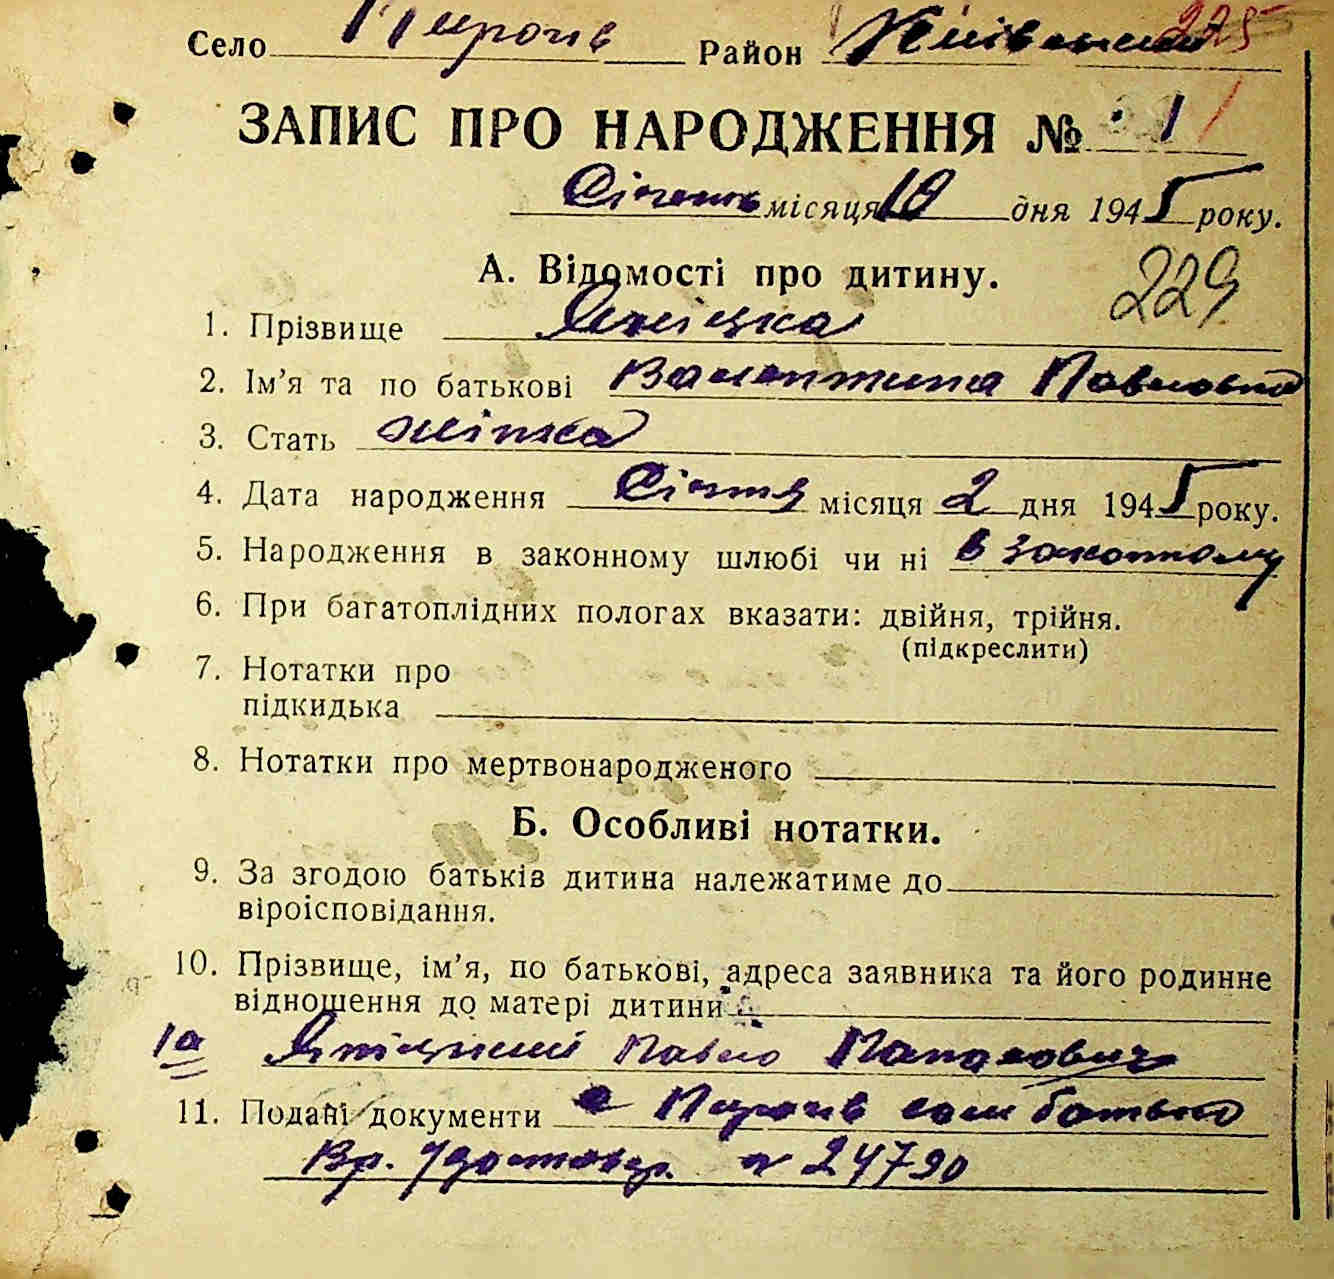 Село Пирогів Район Київський 225
ЗАПИС ПРО НАРОДЖЕННЯ № 1
Січень місяця 10 дня 1945 року.
А. Відомості про дитину.
229
1. Прізвище
2. Ім'я та по батькові Валентина Павловна
3. Стать жінка
4. Дата народження Січня місяця 2 дня 1945 року.
5. Народження в законному шлюбі чи ні в законному
6. При багатоплідних пологах вказати: двійня, трійня.
(підкреслити)
7. Нотатки про
підкидька
8. Нотатки про мертвонародженого
Б. Особливі нотатки.
9. За згодою батьків дитина належатиме до
віроісповідання.
10. Прізвище, ім'я, по батькові, адреса заявника та його родинне
відношення до матері дитини
1а Павло
11. Подані документи с Пирогів сам батько
Вр. Удостовер. № 24790